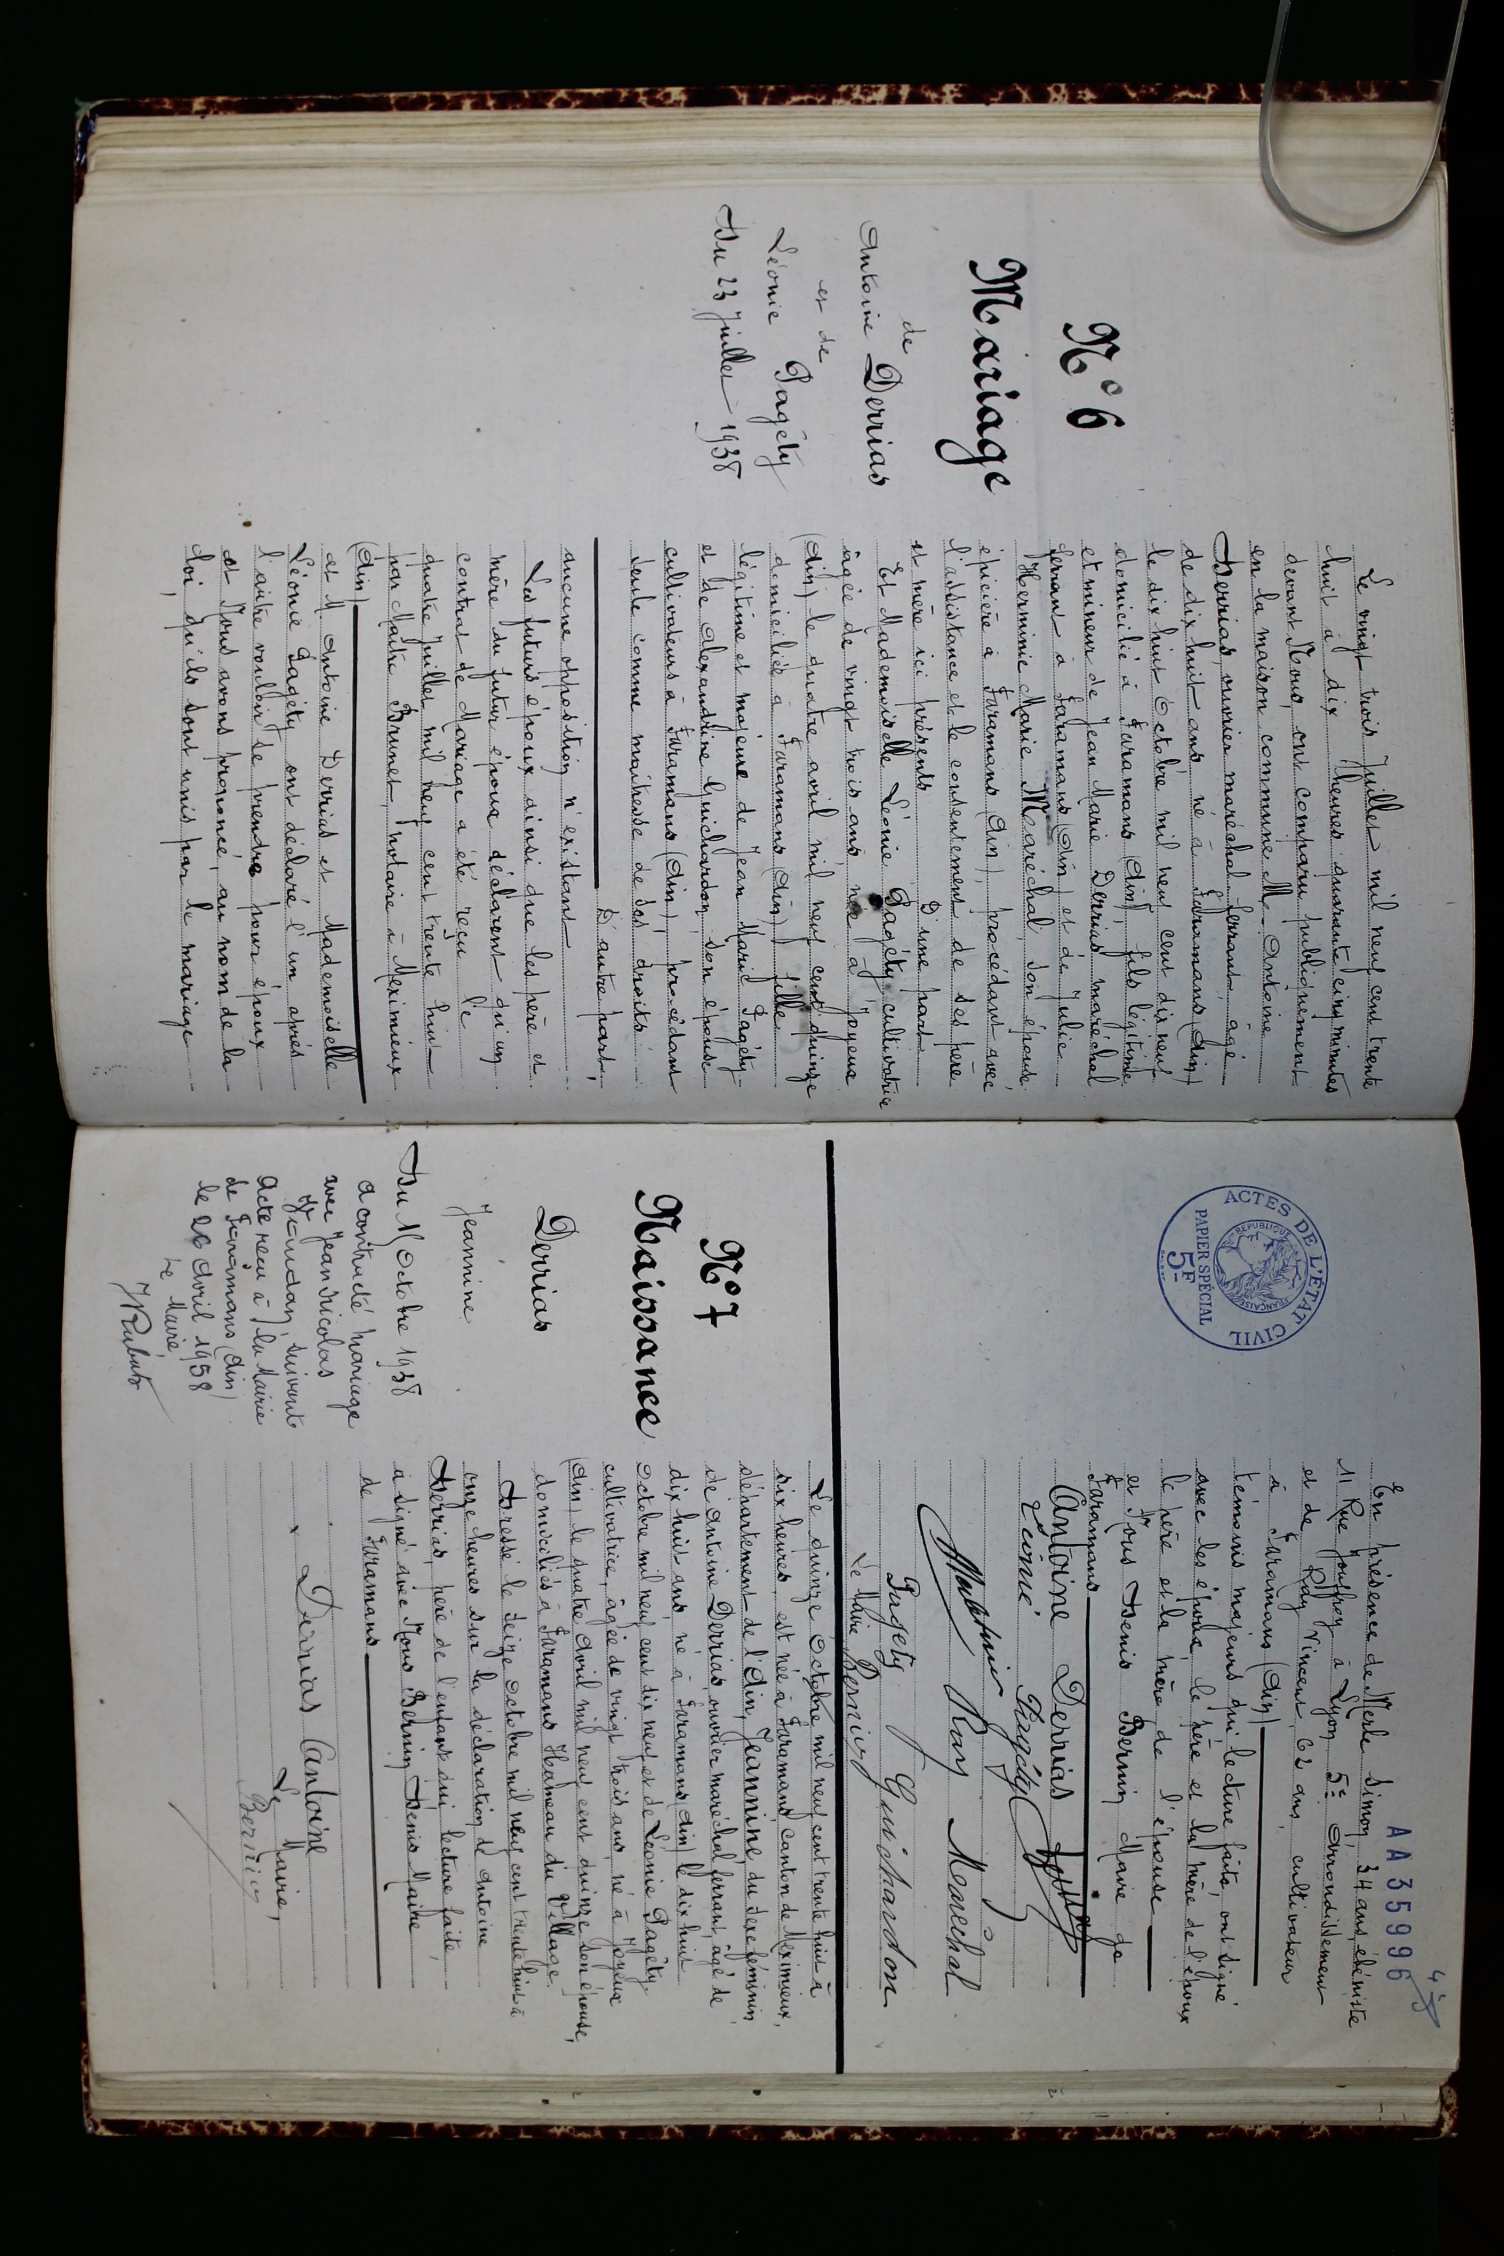 N° 6
Mariage
de
Antoine Derrias
et de
Léonie Pagéty
Du 23 Juillet 1938
Le vingt trois Juillet mil neuf cent trente
huit à dix heures quarante cinq minutes
devant Nous, ont comparu publiquement
en la maison commune M. Antoine
Derrias, ouvrier maréchal ferrant, âgé
de dix huit ans né à Faramans (Ain)
le dix huit Octobre mil neuf cent dix neuf
domicilié à Faramans (Ain), fils légitime
et mineur de Jean Marie Derrias maréchal
ferrant à Faramans (Ain) et de Julie
Herminie Marie Maréchal, son épouse,
épicière à Faramans (Ain), procédant avec
l'assistance et le consentement de ses père
et mère ici présents D'une part
Et Mademoiselle Léonie Pagéty, cultivatrice
âgée de vingt trois ans, née à Joyeux
(Ain) le quatre avril mil neuf cent quinze
domiciliée à Faramans (Ain), fille
légitime et majeure de Jean Marie Pagéty
et de Alexandrine Guichardon, son épouse
cultivateurs à Faramans (Ain), procédant
seule comme maîtresse de ses droits
D'autre part,
aucune opposition n'existant
Les futurs époux ainsi que les père et
mère du futur époux déclarent qu'un
contrat de Mariage a été reçu le
quatre Juillet mil neuf cent trente huit
par Maître Brunet, notaire à Meximieux
(Ain)
et M Antoine Derrias et Mademoiselle
Léonie Pagéty ont déclaré l'un après
l'autre vouloir se prendre pour époux
et Nous avons prononcé, au nom de la
loi, qu'ils sont unis par le mariage
ACTES DE L'ÉTAT CIVIL
REPUBLIQUE FRANÇAISE
PAPIER SPÉCIAL
5F
AA 35996
En présence de Merle Simon, 34 ans, ébéniste
11 Rue Jouffroy à Lyon 5e arrondissement
et de Ray Vincent, 62 ans, cultivateur
à Faramans (Ain)
témoins majeurs qui lecture faite, ont signé
avec les époux, le père et la mère de l'époux
le père et la mère de l'épouse
et Nous Denis Bernin Maire de
Faramans
Antoine Derrias
Léonie Pagéty
Ray Maréchal
Pagéty Guichardon
Le Maire Bernin
N° 7
Naissance
Derrias
Jeannine
Du 15 Octobre 1938
a contracté mariage
avec Jean Nicolas
suivant
acte reçu à la Mairie
de Faramans (Ain)
le 26 Avril 1958
Le Maire
Le quinze Octobre mil neuf cent trente huit à
six heures, est née à Faramans, canton de Meximieux,
département de l'Ain, Jeannine, du sexe féminin,
de Antoine Derrias, ouvrier maréchal ferrant, âgé de
dix huit ans, né à Faramans (Ain) le dix huit
Octobre mil neuf cent dix neuf et de Léonie Pagéty
cultivatrice, âgée de vingt trois ans, né à Joyeux
(Ain) le quatre Avril mil neuf cent quinze son épouse,
domiciliés à Faramans Hameau du Village
Dressé le seize octobre mil neuf cent trente huit à
onze heures sur la déclaration de Antoine
Derrias, père de l'enfant qui, lecture faite,
a signé avec Nous Bernin Denis Maire
de Faramans
Derrias Antoine
Le Maire,
Bernin